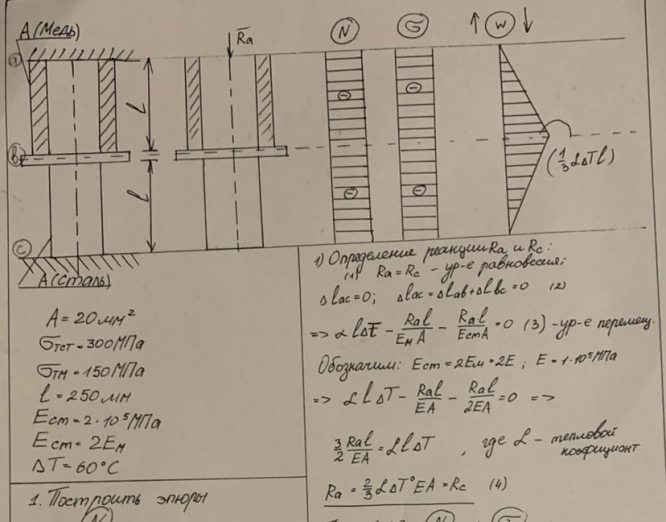 A (Медь)
Ra
N
σ
↑ W ↓
a
l
b
l
c
(1/3 αΔTl)
A (Сталь)
A = 20 мм²
σтст = 300 МПа
σтм = 150 МПа
l = 250 мм
Eст = 2·10⁵ МПа
Eст = 2Eм
ΔT = 60°C
1. Построить эпюры
N
1) Определение реакции Ra и Rc:
(1) Ra = Rc - ур-е равновесия;
Δlac = 0; Δlac = Δlab + Δlbc = 0 (2)
=> αlΔT - Ral/EмA - Ral/EстA = 0 (3) - ур-е перемещ.
Обозначим: Eст = 2Eм = 2E ; E = 1·10⁵ МПа
=> αlΔT - Ral/EA - Ral/2EA = 0 =>
3/2 Ral/EA = αlΔT , где α - тепловой
коэфициент
Ra = 2/3 αΔT°EA = Rc (4)